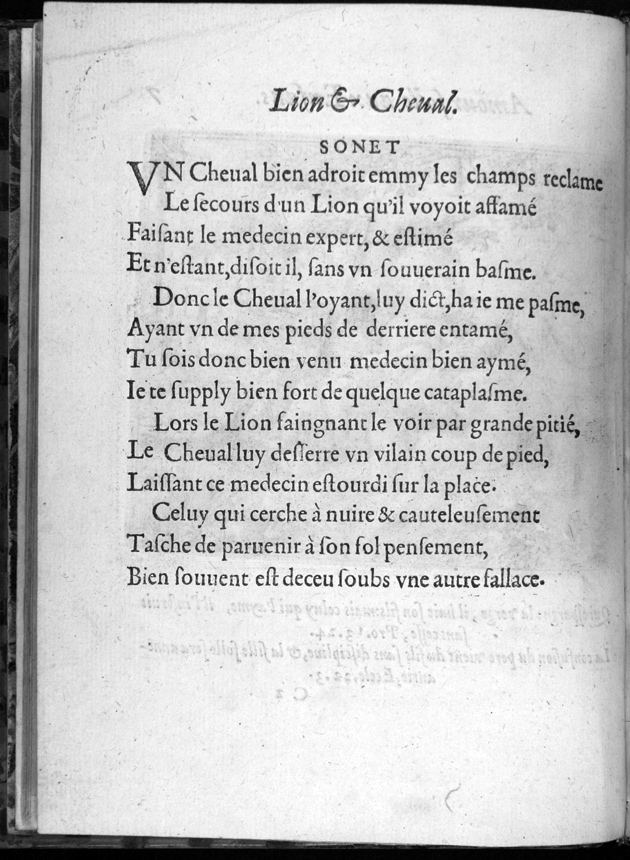 Lion & Cheual.
SONET
VN Cheual bien adroit emmy les champs reclame
Le ſecours d'un Lion qu'il voyoit affamé
Faiſant le medecin expert, & eſtimé
Et n'eſtant, diſoit il, ſans vn ſouuerain baſme.
Donc le Cheual l'oyant, luy dict, ha ie me paſme,
Ayant vn de mes pieds de derriere entamé,
Tu ſois donc bien venu medecin bien aymé,
Ie te ſupply bien fort de quelque cataplaſme.
Lors le Lion faingnant le voir par grande pitié,
Le Cheual luy deſſerre vn vilain coup de pied,
Laiſſant ce medecin eſtourdi ſur la place.
Celuy qui cerche à nuire & cauteleuſement
Taſche de paruenir à ſon fol penſement,
Bien ſouuent eſt deceu ſoubs vne autre fallace.